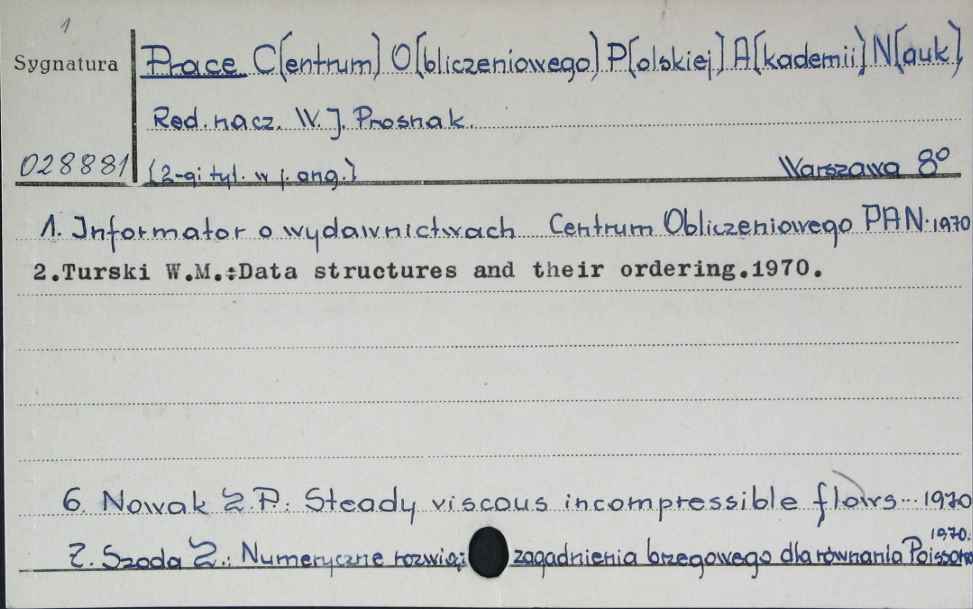 1
Sygnatura Prace C[entrum] O[bliczeniowego] P[olskiej] A[kademii] N[auk]
Red. nacz. W. J. Prosnak.
028881 (2-gi tyt. w j. ang.) Warszawa 8°
1. Informator o wydawnictwach Centrum Obliczeniowego PAN. 1970
2.Turski W.M.:Data structures and their ordering.1970.
6. Nowak Z.P.: Steady viscous incompressible flows... 1970
7. Szoda Z.: Numeryczne zagadnienia brzegowego dla równania 1970.